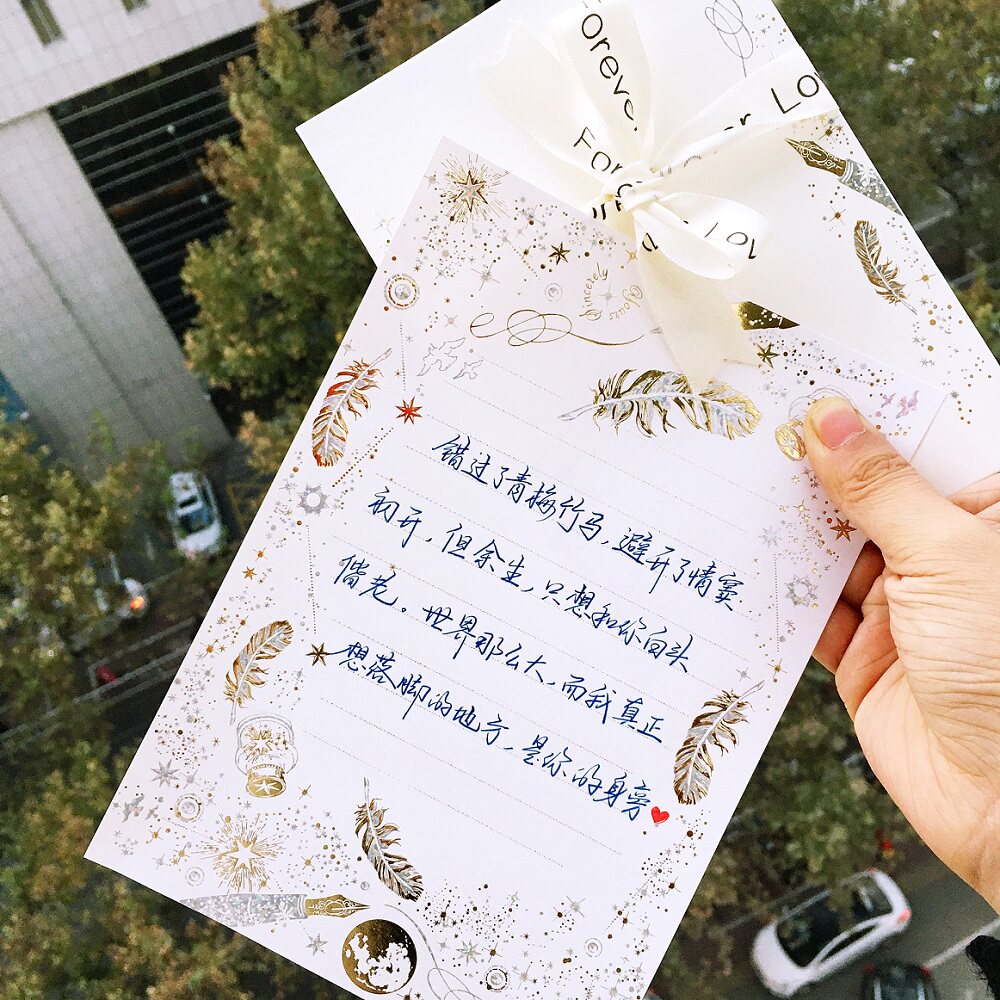 Forever
Lov
Forever Lov
Yours
Sincerely
错过了青梅竹马，避开了情窦
初开，但余生，只想和你白头
偕老。世界那么大，而我真正
想落脚的地方，是你的身旁